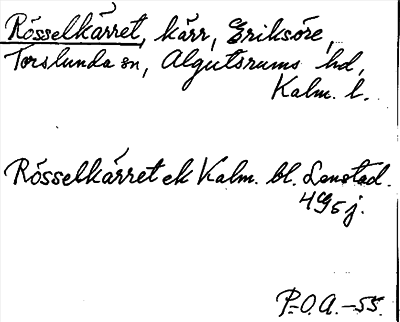 Rösselkärret, kärr, Eriksöre,
Torslunda sn, Algutsrums hd,
Kalm. l.
Rösselkärret ek Kalm. bl. Lenstad.
4G5j.
P.O.A. -55.